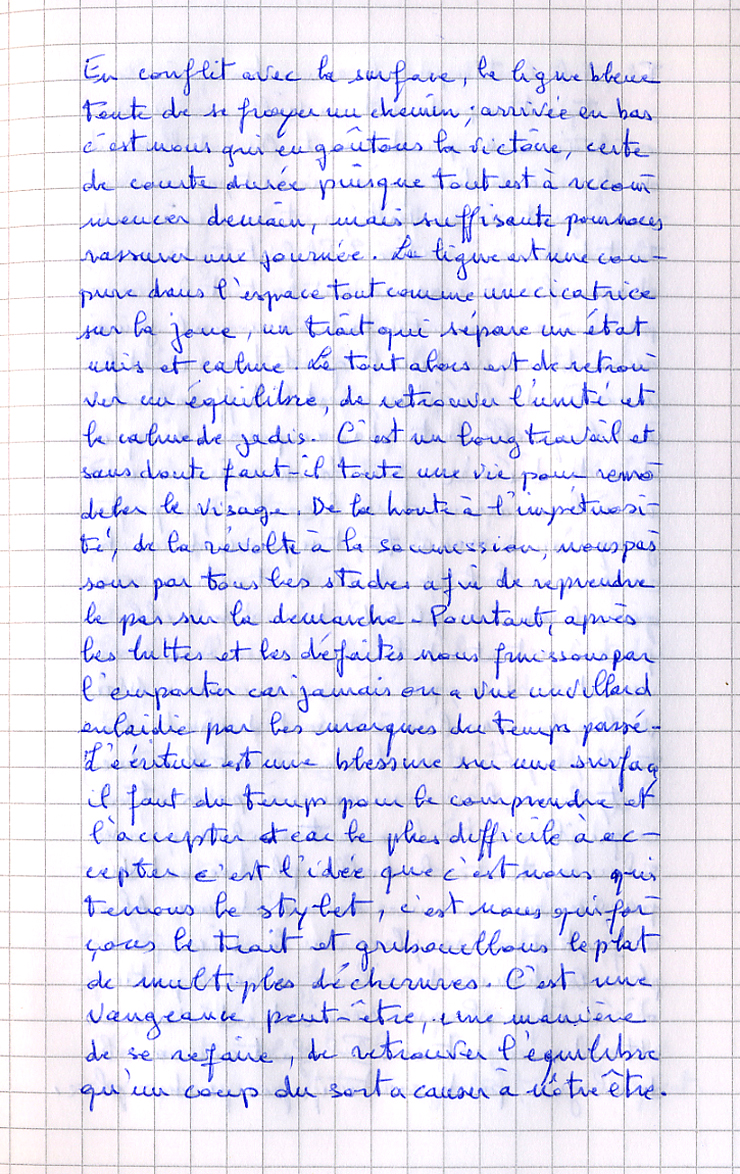 En conflit avec la surface, la ligne bleue
tente de se frayer un chemin ; arrivée en bas
c'est nous qui en goûtons la victoire, certe
de courte durée puisque tout est à recom
mencer demain, mais suffisante pour nous
rassurer une journée. La ligne est une cou-
pure dans l'espace tout comme une cicatrice
sur la joue, un trait qui sépare un état
unis et calme. Le tout alors est de retrou
ver un équilibre, de retrouver l'unité et
le calme de jadis. C'est un long travail et
sans doute faut-il toute une vie pour remo
deler le visage. De la honte à l'impétuosi-
té, de la révolte à la soumission, nous pas
sons par tous les stades afin de reprendre
le pas sur la démarche. Pourtant, après
les luttes et les défaites nous finissons par
l'emporter car jamais on a vue un villard
enlaidie par les marques du temps passé.
L'écriture est une blessure sur une surface
il faut du temps pour le comprendre et
l'accepter et car le plus difficile à ac-
cepter c'est l'idée que c'est nous qui
tenons le stylet, c'est nous qui for
çons le trait et gribouillons le plat
de multiples déchirures. C'est une
vangeance peut-être, une manière
de se refaire, de retrouver l'équilibre
qu'un coup du sort a causer à nôtre être.